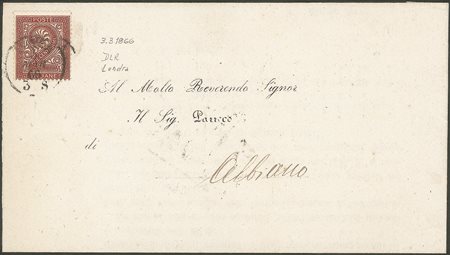 POSTE
3.8.1866
DLR
Londra
Al Molto Reverendo Signor
Il Sig. Parroco
di
Albiano